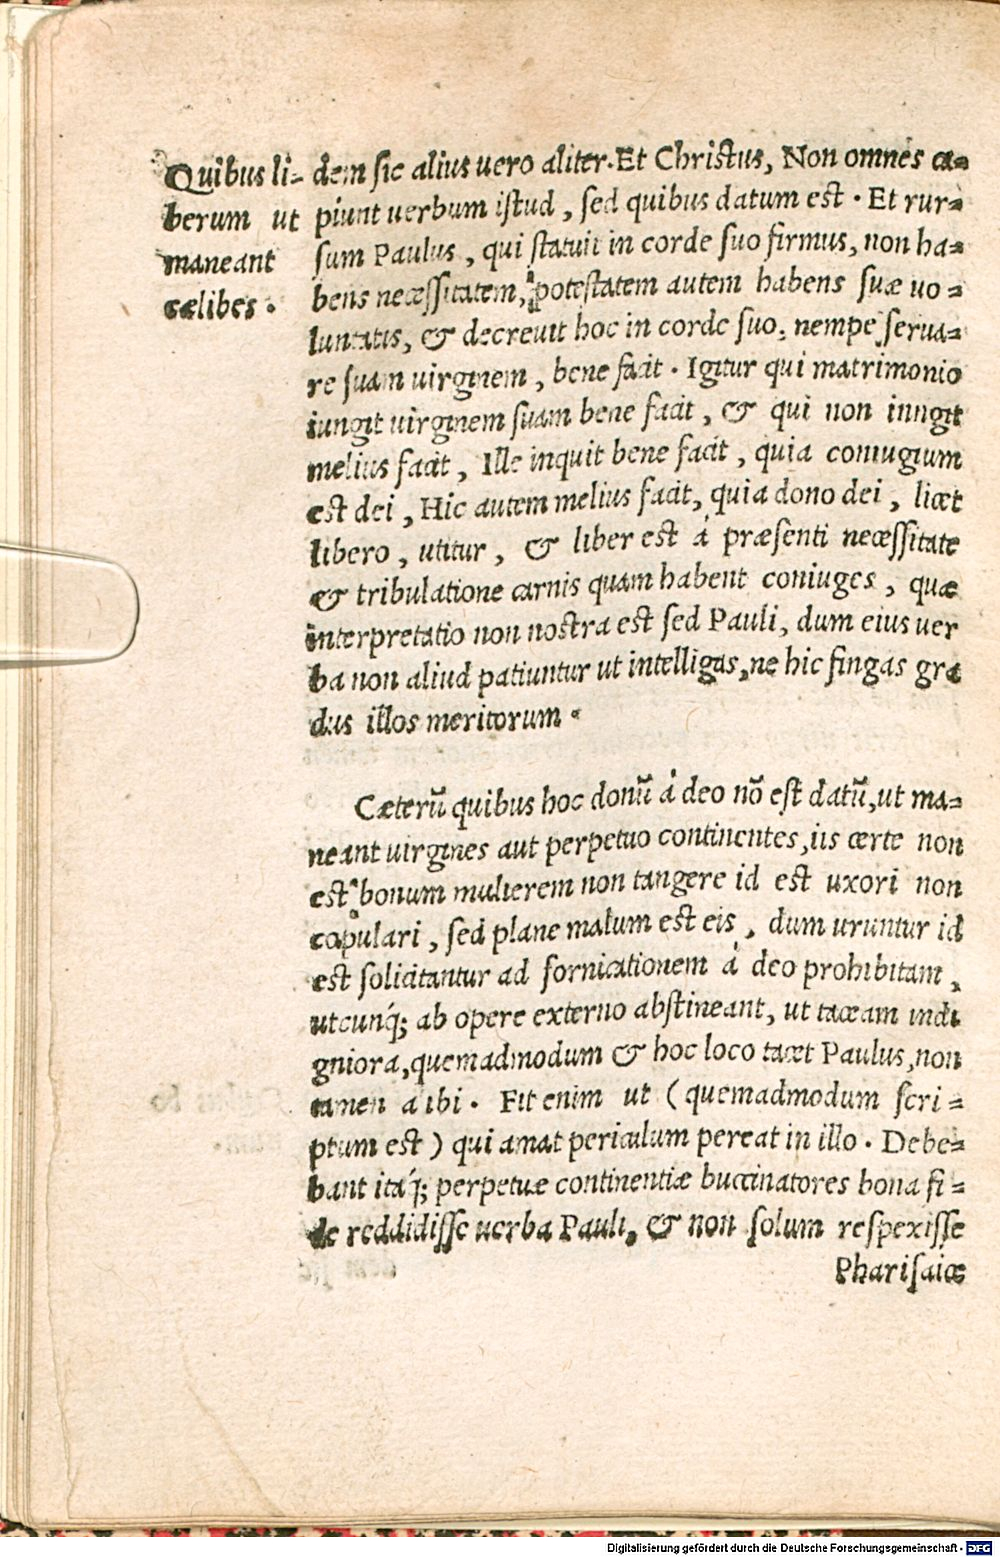 Quibus li-
berum ut
maneant
cælibes.
dem sic alius uero aliter. Et Christus, Non omnes ca-
piunt uerbum istud, sed quibus datum est. Et rur-
sum Paulus, qui statuit in corde suo firmus, non ha-
bens necessitatem, potestatem autem habens suæ uo-
luntatis, & decreuit hoc in corde suo, nempe seruа-
re suam uirginem, bene facit. Igitur qui matrimonio
iungit uirginem suam bene facit, & qui non iungit
melius facit, Ille inquit bene facit, quia coniugium
est dei, Hic autem melius facit, quia dono dei, licet
libero, utitur, & liber est á præsenti necessitate
& tribulatione carnis quam habent coniuges, quæ
interpretatio non nostra est sed Pauli, dum eius uer
ba non aliud patiuntur ut intelligas, ne hic fingas gra
dus illos meritorum.
Cæterũ quibus hoc donũ á deo nõ est datũ, ut ma-
neant uirgines aut perpetuo continentes, iis certe non
est bonum mulierem non tangere id est uxori non
copulari, sed plane malum est eis, dum uruntur id
est solicitantur ad fornicationem á deo prohibitam,
utcunq; ab opere externo abstineant, ut taceam indi
gniora, quemadmodum & hoc loco tacet Paulus, non
tamen alibi. Fit enim ut (quemadmodum scri-
ptum est) qui amat periculum pereat in illo. Debe-
bant itaq; perpetuæ continentiæ buccinatores bona fi-
de reddidisse uerba Pauli, & non solum respexisse
Pharisaicæ
Digitalisierung gefördert durch die Deutsche Forschungsgemeinschaft - DFG